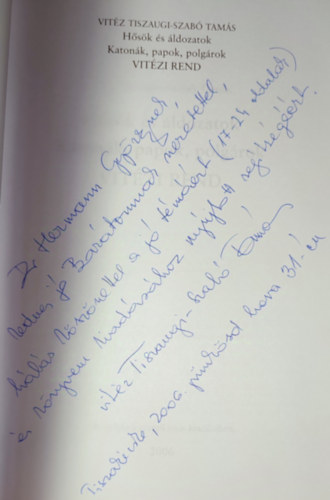 VITÉZ TISZAUGI-SZABÓ TAMÁS
Hősök és áldozatok
Katonák, papok, polgárok
VITÉZI REND
Dr Hermann Győzőnek
kedves jó Barátomnak szeretettel,
hálás köszönettel a jó témáért (17-24 oldalak)
és könyvem kiadásához nyújtott segítségéért.
vitéz Tiszaugi-Szabó Tamás
2006 pünkösd hava 31.-én